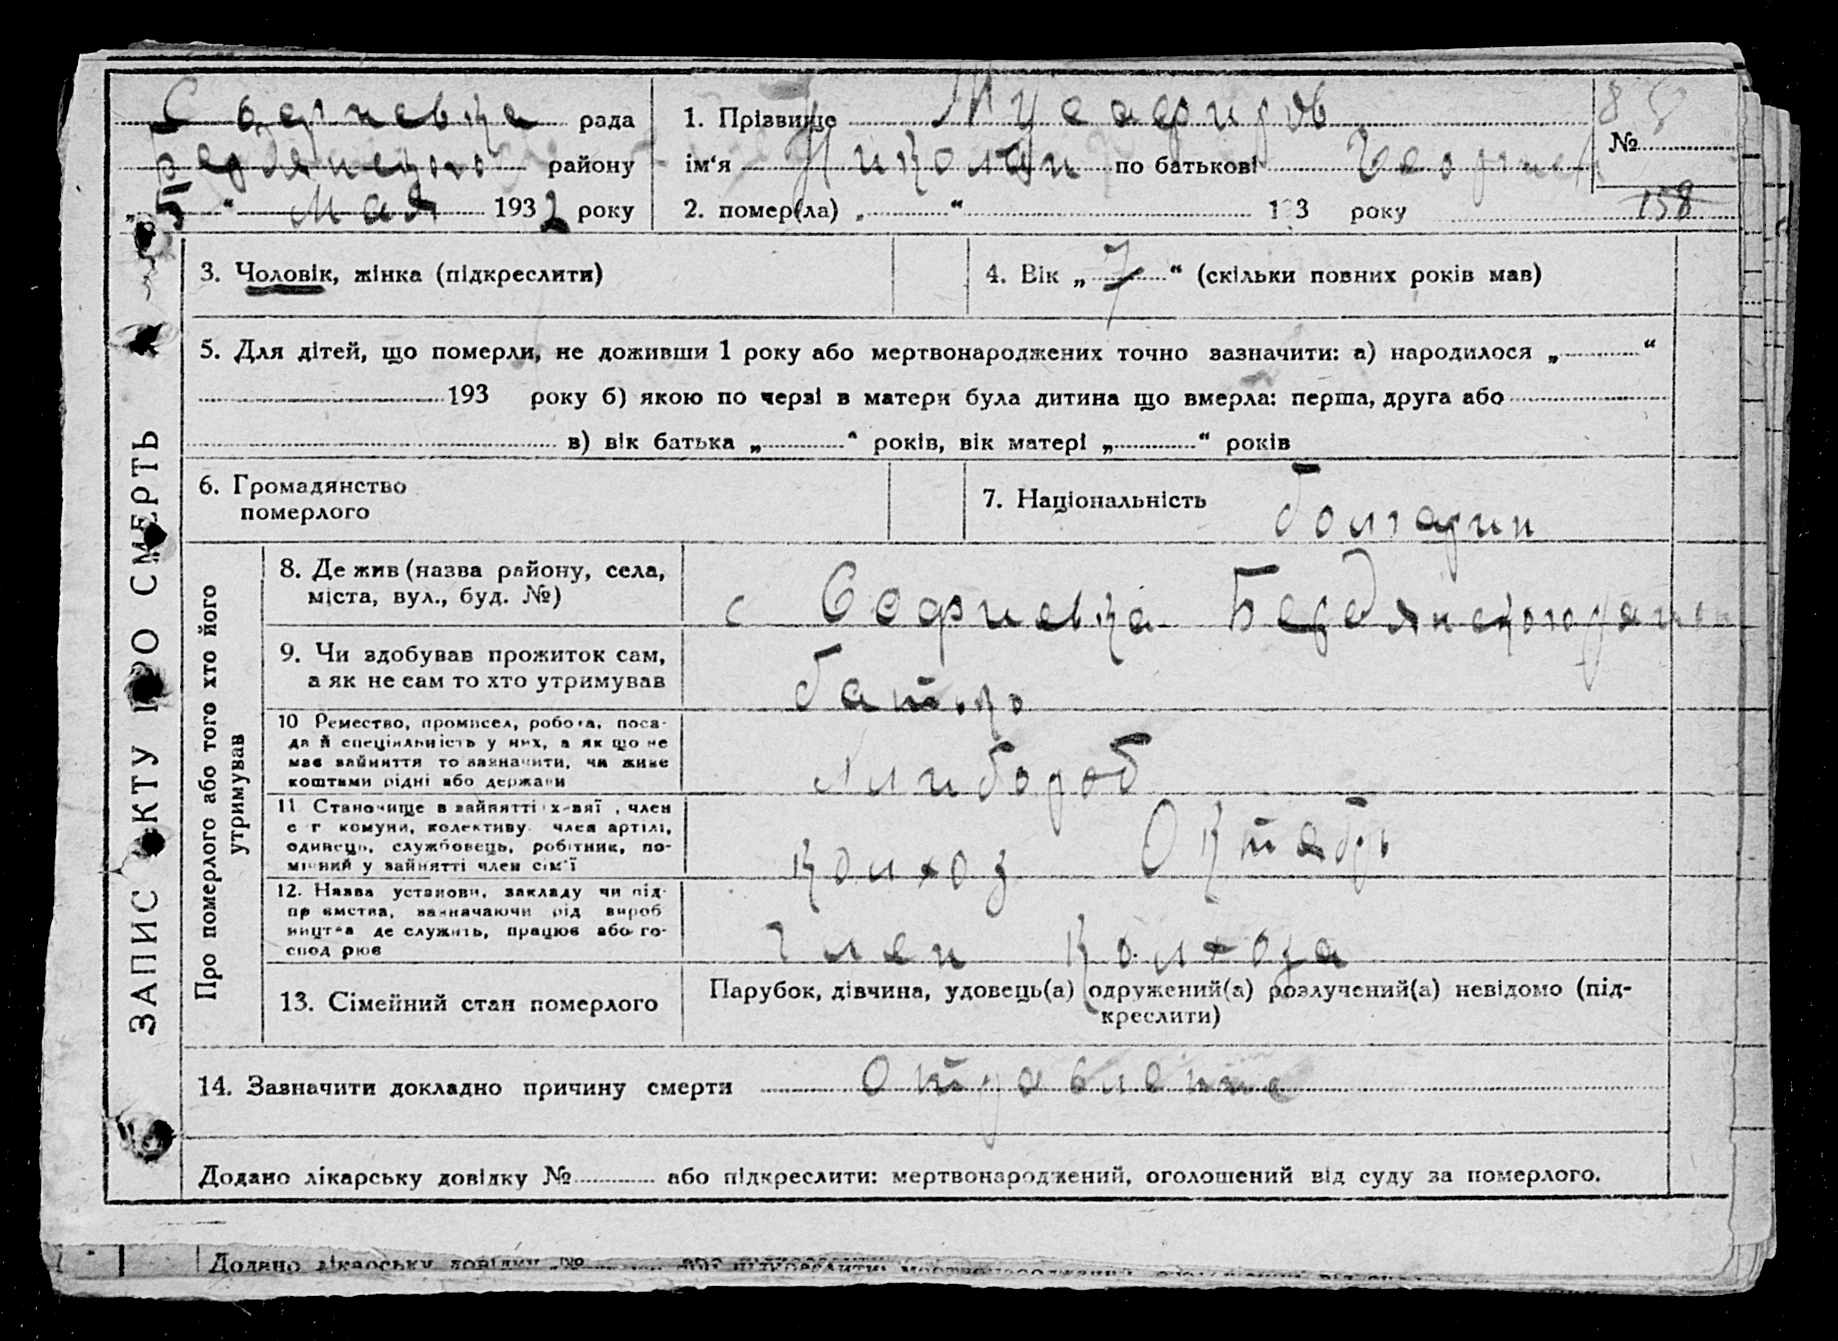 Софиевка рада
Бердянского району
„5“ Мая 1932 року
1. Прізвище Мусафиров
ім'я Николай по батькові Георгиев
2. помер(ла) „ “ 193 року
№
158
3. Чоловік, жінка (підкреслити)
4. Вік „7“ (скільки повних років мав)
5. Для дітей, що померли, не доживши 1 року або мертвонароджених точно зазначити: а) народилося „ “
193 року б) якою по черзі в матери була дитина що вмерла: перша, друга або
в) вік батька „ “ років, вік матері „ “ років
6. Громадянство
померлого
7. Національність болгарин
ЗАПИС АКТУ ПРО СМЕРТЬ
Про померлого або того хто його
утримував
8. Де жив (назва району, села,
міста, вул., буд. №)
с Софиевка Бердянского район
9. Чи здобував прожиток сам,
а як не сам то хто утримував
батько
10 Ремество, промисел, робота, поса-
да й спеціяльність у них, а як що не
має зайняття то зазначити, чи живе
коштами рідні або держави
Хлибороб
11 Становище в зайнятті: хазяї, член
с г комуни, колективу член артілі,
одинець, службовець, робітник, по-
мічний у зайнятті член сім'ї
колхоз Октябрь
12. Назва установи, закладу чи під-
приємства, зазначаючи рід вироб
ництва де служить, працює або го-
сподарює
член колхоза
13. Сімейний стан померлого
Парубок, дівчина, удовець(а) одружений(а) розлучений(а) невідомо (під-
креслити)
14. Зазначити докладно причину смерти отравление
Додано лікарську довідку № або підкреслити: мертвонароджений, оголошений від суду за померлого.
Додано лікарську довідку №